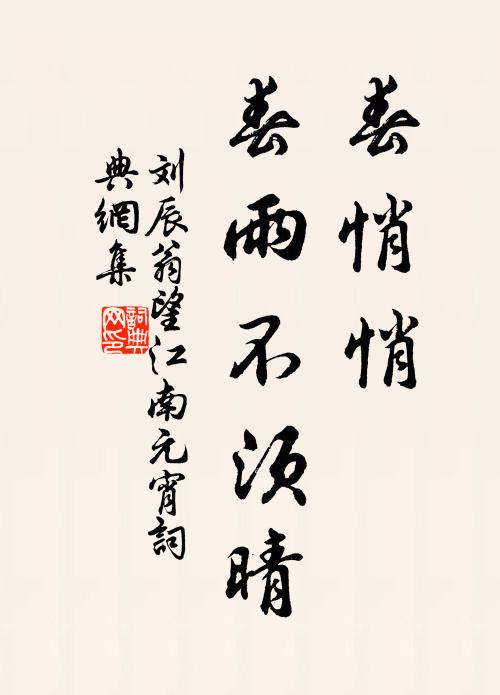 春悄悄
春雨不须晴
刘辰翁望江南元宵詞
典網集
詞典网印